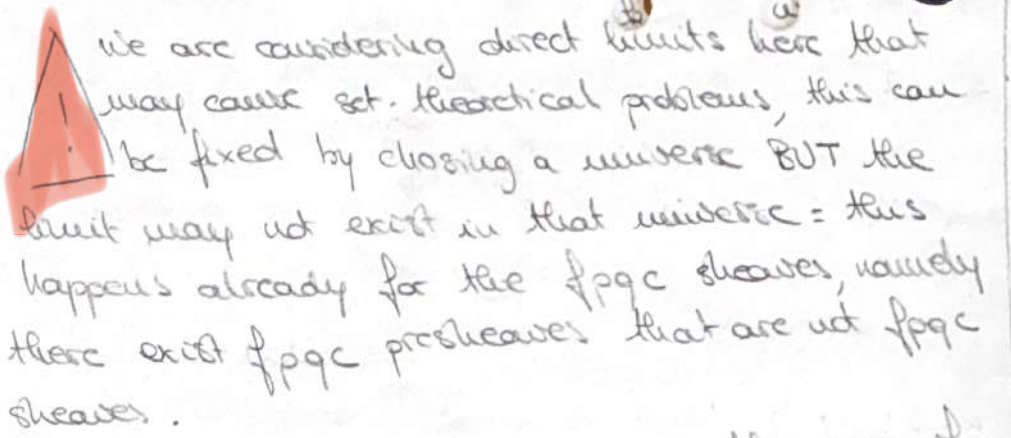 we are considering direct limits here that
may cause set-theoretical problems, this can
be fixed by chosing a universe BUT the
limit may not exist in that universe = this
happens already for the fpqc sheaves, namely
there exist fpqc presheaves that are not fpqc
sheaves.